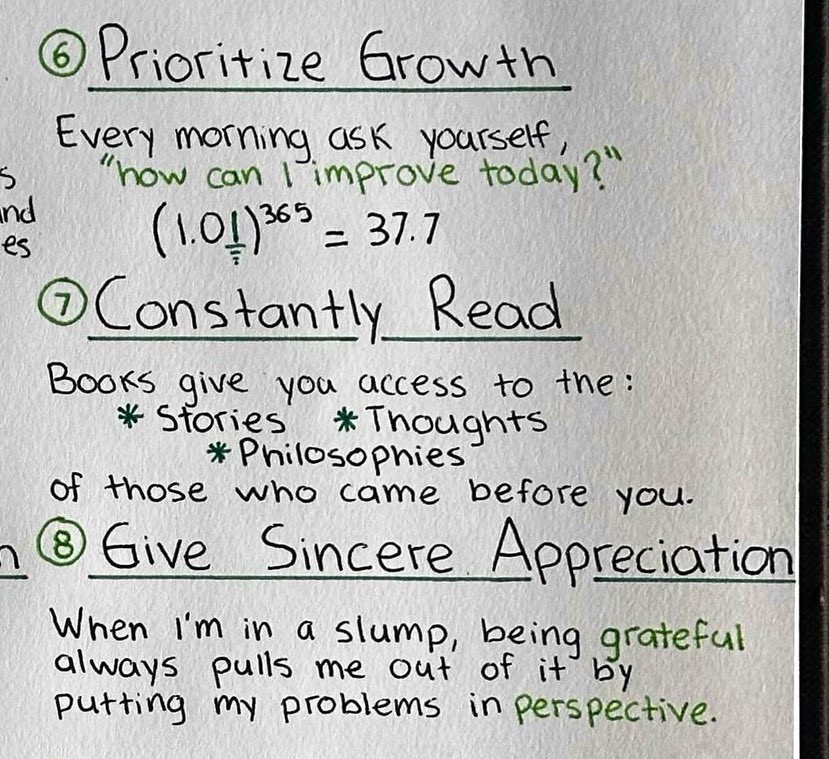 6 Prioritize Growth
Every morning ask yourself,
"how can I improve today?"
s
nd
(1.01)^365 = 37.7
es
7 Constantly Read
Books give you access to the:
* Stories * Thoughts
* Philosophies
of those who came before you.
n 8 Give Sincere Appreciation
When I'm in a slump, being grateful
always pulls me out of it by
putting my problems in perspective.